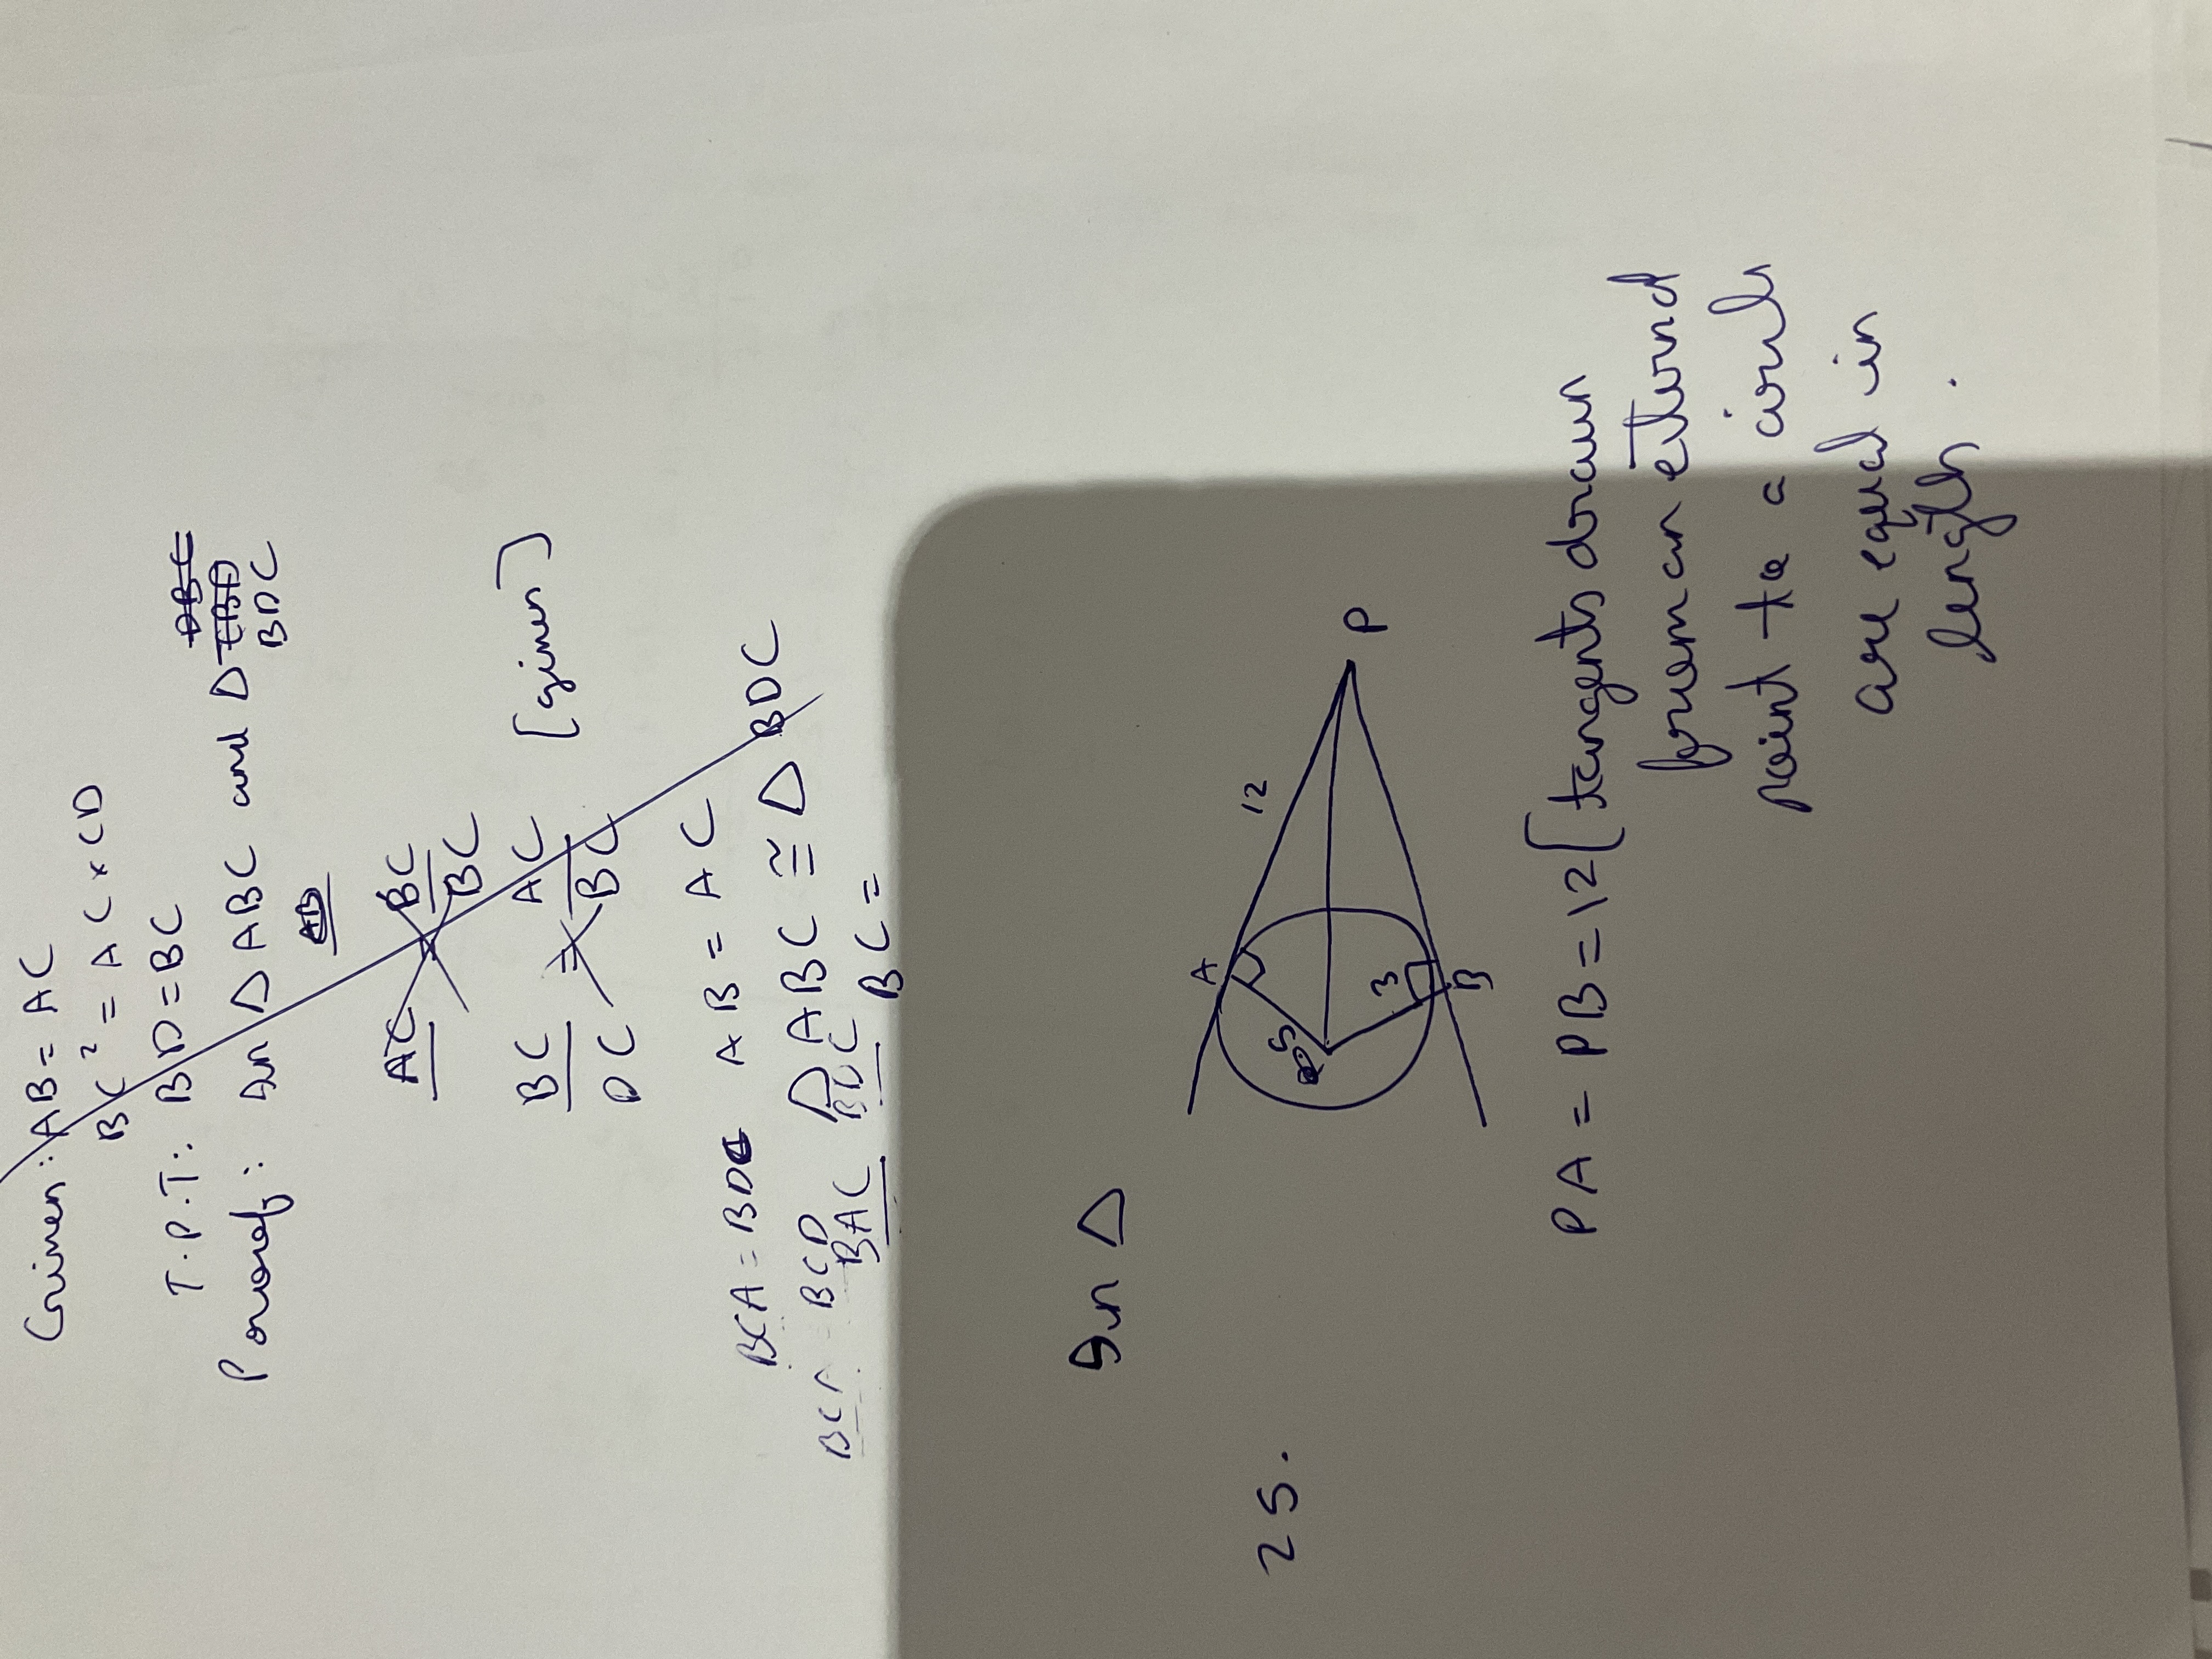 Given: AB = AC
BC² = AC × CD
T.P.T: BD = BC
Proof: In Δ ABC and Δ BDC
AC BC
BC
BC AC [given]
DC BC
BCA = BDC AB = AC
Δ ABC ≅ Δ BDC
BCD
BAC BDC BC =
In Δ
25.
A
12
5
P
3
B
PA = PB = 12 [tangents drawn
from an external
point to a circle
are equal in
length.